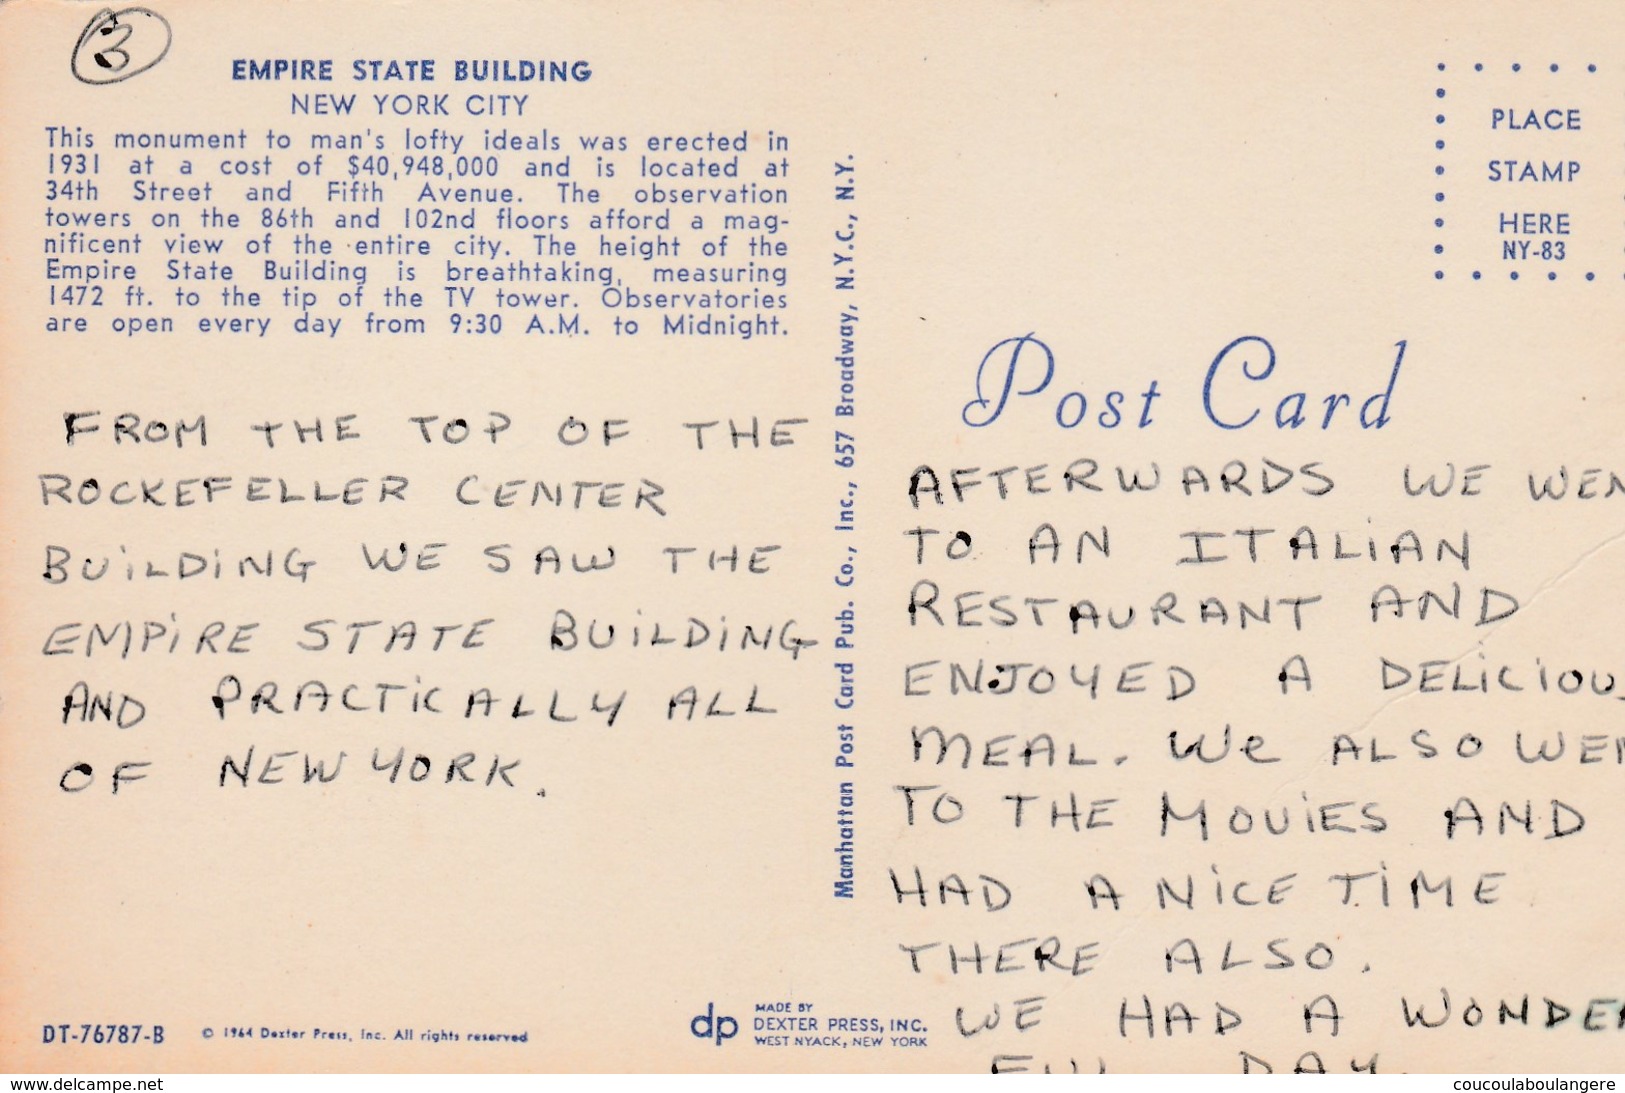 3
EMPIRE STATE BUILDING
NEW YORK CITY
This monument to man's lofty ideals was erected in
1931 at a cost of $40,948,000 and is located at
34th Street and Fifth Avenue. The observation
towers on the 86th and 102nd floors afford a mag-
nificent view of the entire city. The height of the
Empire State Building is breathtaking, measuring
1472 ft. to the tip of the TV tower. Observatories
are open every day from 9:30 A.M. to Midnight.
FROM THE TOP OF THE
ROCKEFELLER CENTER
BUiLDiNG WE SAW THE
EMPiRE STATE BUiLDiNG
AND PRACTiCALLY ALL
OF NEW YORK.
DT-76787-B
© 1964 Dexter Press, Inc. All rights reserved
dp
MADE BY
DEXTER PRESS, INC.
WEST NYACK, NEW YORK
Manhattan Post Card Pub. Co., Inc., 657 Broadway, N.Y.C., N.Y.
PLACE
STAMP
HERE
NY-83
Post Card
AFTERWARDS WE WEN
TO AN ITALiAN
RESTAURANT AND
ENJOYED A DELiCiOUS
MEAL. We ALSO WEN
TO THE MOViES AND
HAD A NiCE TiME
THERE ALSO.
WE HAD A WONDER
FUL DAY.
www.delcampe.net
coucoulaboulangere